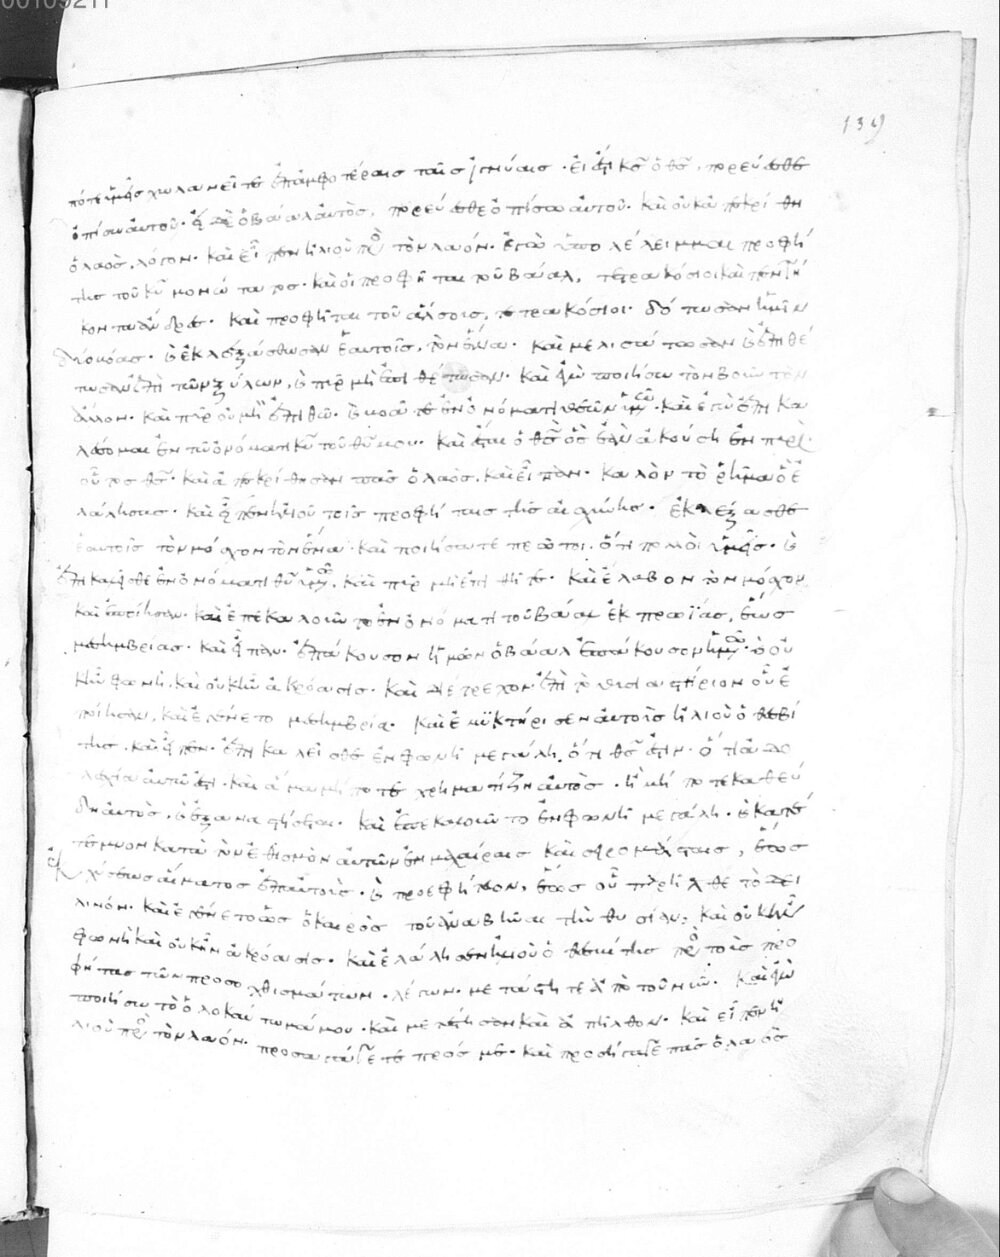 00109211
139
πότε ὑμεῖς χωλανεῖτε ἐπ' ἀμφοτέραις ταῖς ἰγνύαις· εἰ ἔστι κς ὁ θς, πορεύεσθε
ὀπίσω αὐτοῦ· εἰ δὲ ὁ βάαλ αὐτὸς, πορεύεσθε ὀπίσω αὐτοῦ· καὶ οὐκ ἀπεκρίθη
ὁ λαὸς, λόγον· καὶ εἶπεν ἠλιοὺ πρὸς τὸν λαόν· ἐγὼ ὑπολέλειμμαι προφή
της τοῦ κυ μονώτατος· καὶ οἱ προφῆται τοῦ βάαλ, τετρακόσιοι καὶ πεντή
κοντα ἄνδρες· καὶ προφῆται τοῦ ἄλσους, τετρακόσιοι· δότωσαν ἡμῖν
δύο βόας· καὶ ἐκλεξάσθωσαν ἑαυτοῖς, τὸν ἕνα· καὶ μελισάτωσαν καὶ ἐπιθέ
τωσαν ἐπὶ τῶν ξύλων, καὶ πῦρ μὴ ἐπιθέτωσαν· καὶ ἐγὼ ποιήσω τὸν βοῦν τὸν
ἄλλον· καὶ πῦρ οὐ μὴ ἐπιθῶ· καὶ βοᾶτε ἐν ὀνόματι θεῶν ὑμῶν· καὶ ἐγὼ ἐπικα
λέσομαι ἐν τῷ ὀνόματι κυ τοῦ θυ μου· καὶ ἔσται ὁ θς ὃς ἐὰν ἐπακούσῃ ἐν πυρὶ·
οὗτος θς· καὶ ἀπεκρίθησαν πᾶς ὁ λαὸς, καὶ εἶπον· καλὸν τὸ ῥῆμα ὃ ἐ
λάλησας· καὶ εἶπεν ἠλιοὺ τοῖς προφήταις τῆς αἰσχύνης· ἐκλέξασθε
ἑαυτοῖς τὸν μόσχον τὸν ἕνα· καὶ ποιήσατε πρῶτοι· ὅτι πολλοὶ ὑμεῖς· καὶ
ἐπικαλεῖσθε ἐν ὀνόματι θυ ὑμῶν, καὶ πῦρ μὴ ἐπιθῆτε· καὶ ἔλαβον τὸν μόσχον
καὶ ἐποίησαν· καὶ ἐπεκαλοῦντο ἐν ὀνόματι τοῦ βάαλ ἐκ πρωΐας, ἕως
μεσημβρίας· καὶ εἶπον· ἐπάκουσον ἡμῶν ὁ βάαλ ἐπάκουσον ἡμῶν· καὶ οὐ
κ ἦν φωνὴ, καὶ οὐκ ἦν ἀκρόασις· καὶ διέτρεχον ἐπὶ τὸ θυσιαστήριον οὗ ἐ
ποίησαν, καὶ ἐγένετο μεσημβρία· καὶ ἐμυκτήρισεν αὐτοὺς ἠλιοὺ ὁ θεσβί
της· καὶ εἶπεν· ἐπικαλεῖσθε ἐν φωνῇ μεγάλῃ, ὅτι θς ἐστιν· ὅτι ἀδο
λεσχία αὐτῷ ἐστι· καὶ ἅμα μή ποτε χρηματίζῃ αὐτὸς· ἢ μή ποτε καθεύ
δῃ αὐτὸς, καὶ ἐξαναστήσεται· καὶ ἐπεκαλοῦντο ἐν φωνῇ μεγάλῃ· καὶ κατέ
τεμνον κατὰ τὸν ἐθισμὸν αὐτῶν ἐν μαχαίραις καὶ σειρομάσταις, ἕως
ἐκχύσεως αἵματος ἐπ' αὐτοὺς· καὶ προεφήτευον, ἕως οὗ παρῆλθε τὸ δει
λινόν· καὶ ἐγένετο ὡς ὁ καιρὸς τοῦ ἀναβῆναι τὴν θυσίαν· καὶ οὐκ ἦν
φωνὴ καὶ οὐκ ἦν ἀκρόασις· καὶ ἐλάλησεν ἠλιοὺ ὁ θεσβίτης πρὸς τοὺς προ
φήτας τῶν προσοχθισμάτων, λέγων· μετάστητε ἀπὸ τοῦ νῦν· καὶ ἐγὼ
ποιήσω τὸ ὁλοκαύτωμά μου· καὶ μετέστησαν καὶ ἀπῆλθον· καὶ εἶπεν ἠ
λιοὺ πρὸς τὸν λαόν· προσαγάγετε πρός με· καὶ προσήγαγε πᾶς ὁ λαὸς